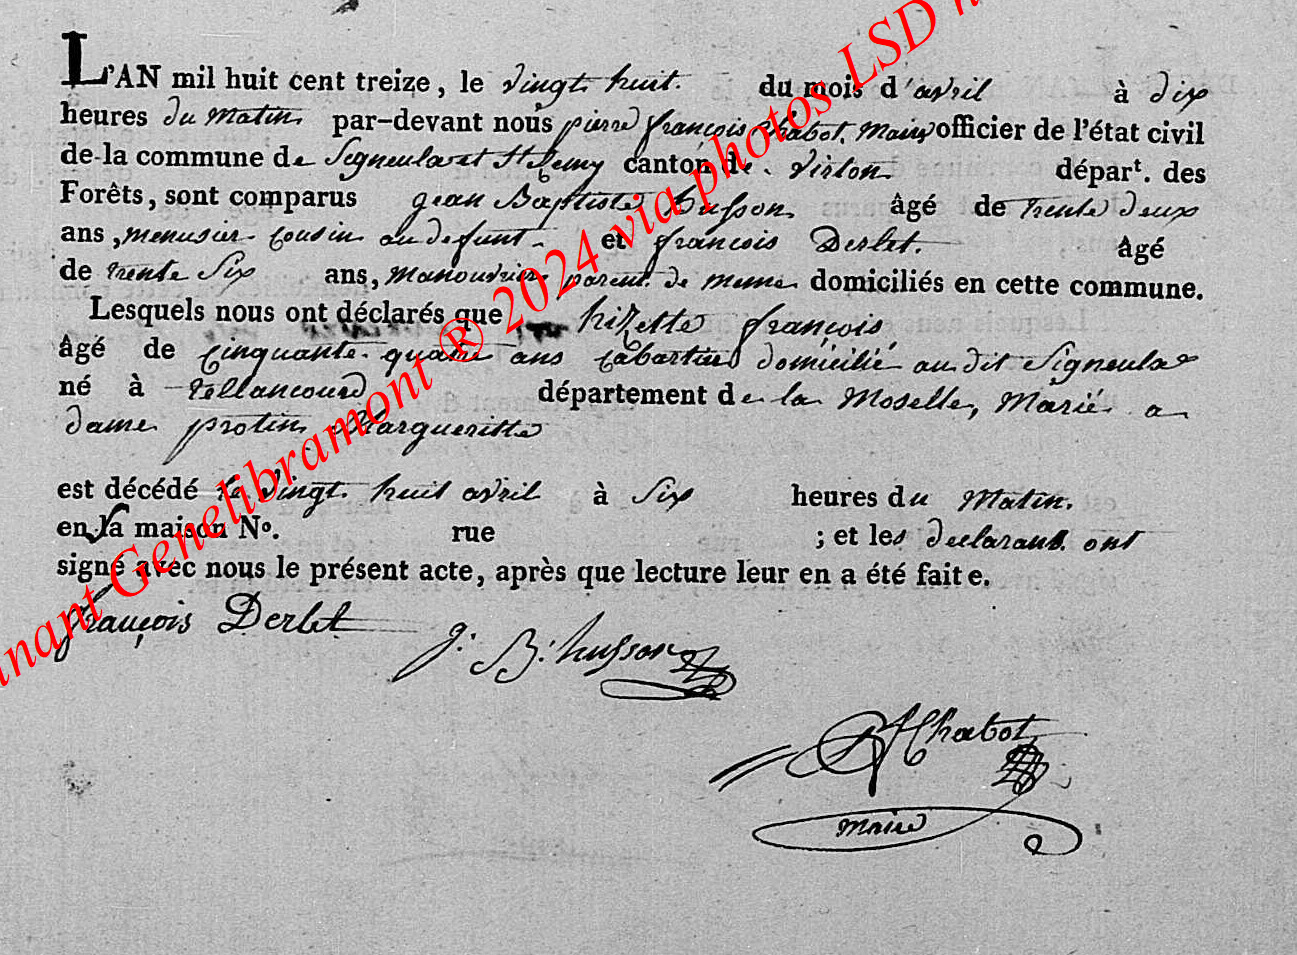 L'AN mil huit cent treize, le vingt huit. du mois d'avril à dix
heures du matin par-devant nous pierre françois Chabot, Maire officier de l'état civil
de la commune de Signeulx et St Remy canton de Virton départ. des
Forêts, sont comparus jean Baptiste husson âgé de trente deux
ans, menusier cousin au defunt et françois Derlet. âgé
de trente Six ans, manouvrier parent de meme domiciliés en cette commune.
Lesquels nous ont déclarés que hizette françois,
âgé de cinquante quatre ans cabartier domicilié au dit Signeulx
né à tellancourd département de la Moselle, Marié a
dame protin Margueritte
est décédé le vingt huit avril à Six heures du Matin.
en sa maison No. rue ; et les declarant ont
signé avec nous le présent acte, après que lecture leur en a été faite.
françois Derlet
J. B. husson
Chabot
maire
nant Genelibramont ® 2024 via photos LSD